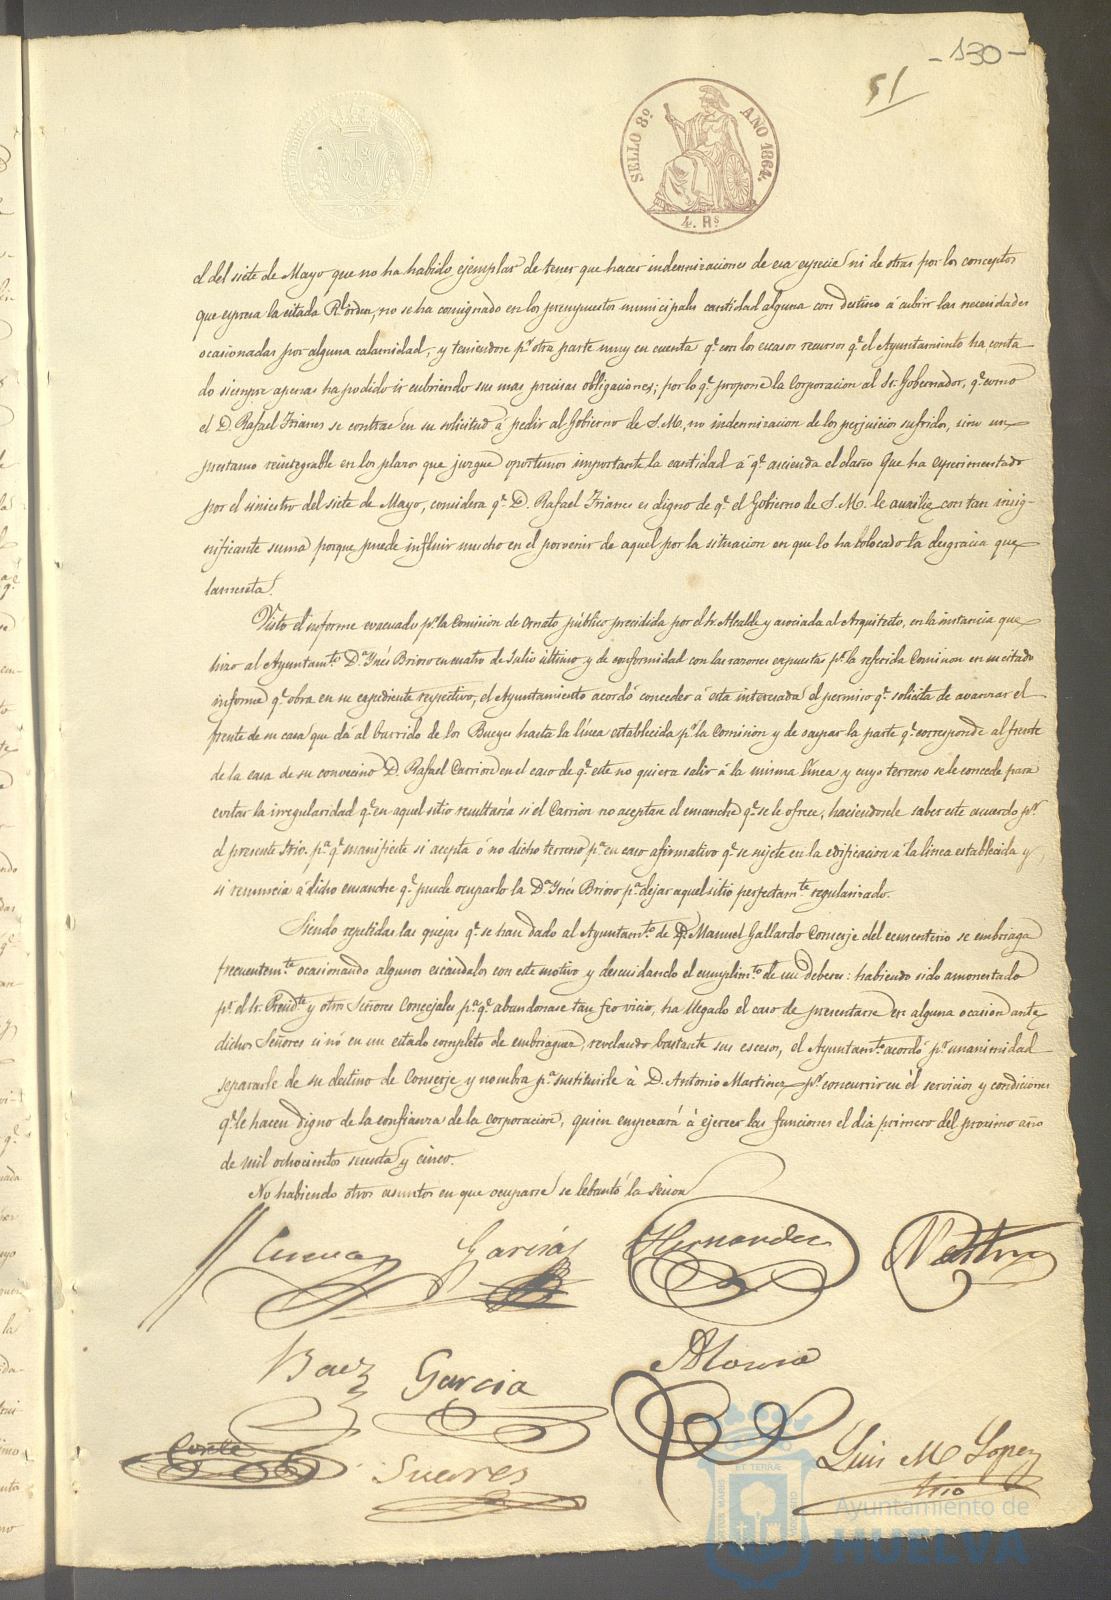 - 130 -
51
SELLO 8º AÑO 1864.
4. Rs
el del siete de Mayo que no ha habido ejemplar de tener que hacer indemnizaciones de esa especie ni de otras por los conceptos
que espresa la citada Rl orden, no se ha consignado en los presupuestos municipales cantidad alguna con destino á cubrir las necesidades
ocasionadas por alguna calamidad; y teniendose pr otra parte muy en cuenta qe con los escasos recursos qe el Ayuntamiento ha conta
do siempre apenas ha podido ir cubriendo sus mas precisas obligaciones; por lo qe propone la Corporacion al Sr. Gobernador, qe como
el D. Rafael Frianes se contrae en su solicitud á pedir al Gobierno de S. M., no indemnizacion de los perjuicios sufridos, sino un
prestamo reintegrable en los plazos que juzgue oportunos importante la cantidad á qe ascienda el daño que ha esperimentado
por el siniestro del siete de Mayo, considera qe D. Rafael Frianes es digno de qe el Gobierno de S. M. le auxilie con tan insig
nificante suma porque puede influir mucho en el porvenir de aquel por la situacion en que lo ha colocado la desgracia que
lamenta.
Visto el informe evacuado pr la Comision de Ornato público presidida por el Sr. Alcalde y asociada al Arquitecto, en la instancia que
hizo al Ayuntamto Da Ynés Brioso en cuatro de Julio último y de conformidad con las razones espuestas pr la referida Comision en su citado
informe qe obra en su espediente respectivo, el Ayuntamiento acordó conceder á esta interesada el permiso qe solicita de avanzar el
frente de su casa que dá al barrido de los Bueyes hasta la línea establecida pr la Comision y de ocupar la parte qe corresponde al frente
de la casa de su convecino D. Rafael Carrion en el caso de qe este no quiera salir á la misma línea y cuyo terreno se le concede para
evitar la irregularidad qe en aquel sitio resultaría si el Carrion no aceptara el ensanche qe se le ofrece, haciendosele saber este acuerdo pr
el presente Srio. pa qe manifieste si acepta ó no dicho terreno pa en caso afirmativo qe se sujete en la edificacion á la línea establecida y
si renuncia á dicho ensanche qe puede ocuparlo la Da Ynés Brioso pa dejar aquel sitio perfectamte regularizado.
Siendo repetidas las quejas qe se han dado al Ayuntamto de qe D. Manuel Gallardo Conserje del cementerio se embriaga
frecuentemte ocasionando algunos escándalos con este motivo y descuidando el cumplimto de sus deberes: habiendo sido amonestado
pr el Sr. Presidte y otros Señores Concejales pa qe abandonase tan feo vicio, ha llegado el caso de presentarse en alguna ocasion ante
dichos Señores si nó en un estado completo de embriaguez, revelando bastante sus escesos, el Ayuntamto acordó pr unanimidad
separarle de su destino de Conserje y nombra pa sustituirle á D. Antonio Martinez pr concurrir en él servicios y condiciones
qe le hacen digno de la confianza de la corporacion, quien empezará á ejercer las funciones el dia primero del proximo año
de mil ochocientos sesenta y cinco.
No habiendo otros asuntos en que ocuparse se lebantó la sesion
Garcia Hernandez
Baez Garcia
Suarez
Luis M Lopez
Srio
Ayuntamiento de
HUELVA